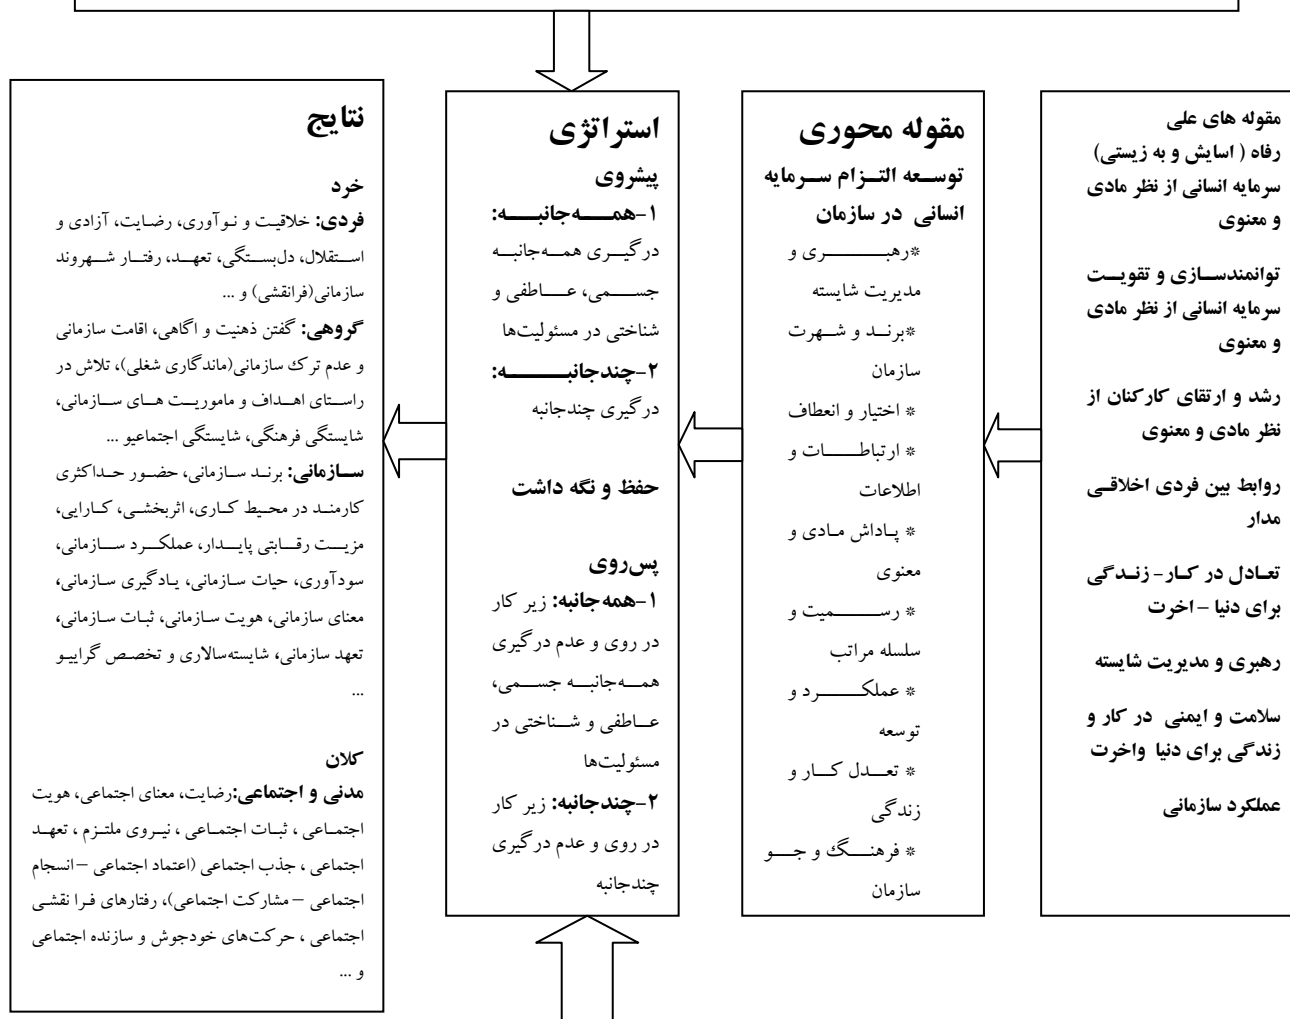 مقوله های علی
رفاه ( اسایش و به زیستی)
سرمایه انسانی از نظر مادی
و معنوی
توانمندسازی و تقویت
سرمایه انسانی از نظر مادی
و معنوی
رشد و ارتقای کارکنان از
نظر مادی و معنوی
روابط بین فردی اخلاقی
مدار
تعادل در کار- زندگی
برای دنیا – اخرت
رهبری و مدیریت شایسته
سلامت و ایمنی در کار و
زندگی برای دنیا واخرت
عملکرد سازمانی
مقوله محوری
توسعه التزام سرمایه
انسانی در سازمان
*رهبری و
مدیریت شایسته
*برند و شهرت
سازمان
* اختیار و انعطاف
* ارتباطات و
اطلاعات
* پاداش مادی و
معنوی
* رسمیت و
سلسله مراتب
* عملکرد و
توسعه
* تعدل کار و
زندگی
* فرهنگ و جو
سازمان
استراتژی
پیشروی
۱-همه‌جانبه:
درگیری همه‌جانبه
جسمی، عاطفی و
شناختی در مسئولیت‌ها
۲-چندجانبه:
درگیری چندجانبه
حفظ و نگه داشت
پس‌روی
۱-همه‌جانبه: زیر کار
در روی و عدم درگیری
همه‌جانبه جسمی،
عاطفی و شناختی در
مسئولیت‌ها
۲-چندجانبه: زیر کار
در روی و عدم درگیری
چندجانبه
نتایج
خرد
فردی: خلاقیت و نوآوری، رضایت، آزادی و
استقلال، دل‌بستگی، تعهد، رفتار شهروند
سازمانی(فرانقشی) و ...
گروهی: گفتن ذهنیت و اگاهی، اقامت سازمانی
و عدم ترک سازمانی(ماندگاری شغلی)، تلاش در
راستای اهداف و ماموریت های سازمانی،
شایستگی فرهنگی، شایستگی اجتماعیو ...
سازمانی: برند سازمانی، حضور حداکثری
کارمند در محیط کاری، اثربخشی، کارایی،
مزیت رقابتی پایدار، عملکرد سازمانی،
سودآوری، حیات سازمانی، یادگیری سازمانی،
معنای سازمانی، هویت سازمانی، ثبات سازمانی،
تعهد سازمانی، شایسته‌سالاری و تخصص گراییو
...
کلان
مدنی و اجتماعی:رضایت، معنای اجتماعی، هویت
اجتماعی ، ثبات اجتماعی ، نیروی ملتزم ، تعهد
اجتماعی ، جذب اجتماعی (اعتماد اجتماعی –انسجام
اجتماعی – مشارکت اجتماعی)، رفتارهای فرا نقشی
اجتماعی ، حرکت‌های خودجوش و سازنده اجتماعی
و ...